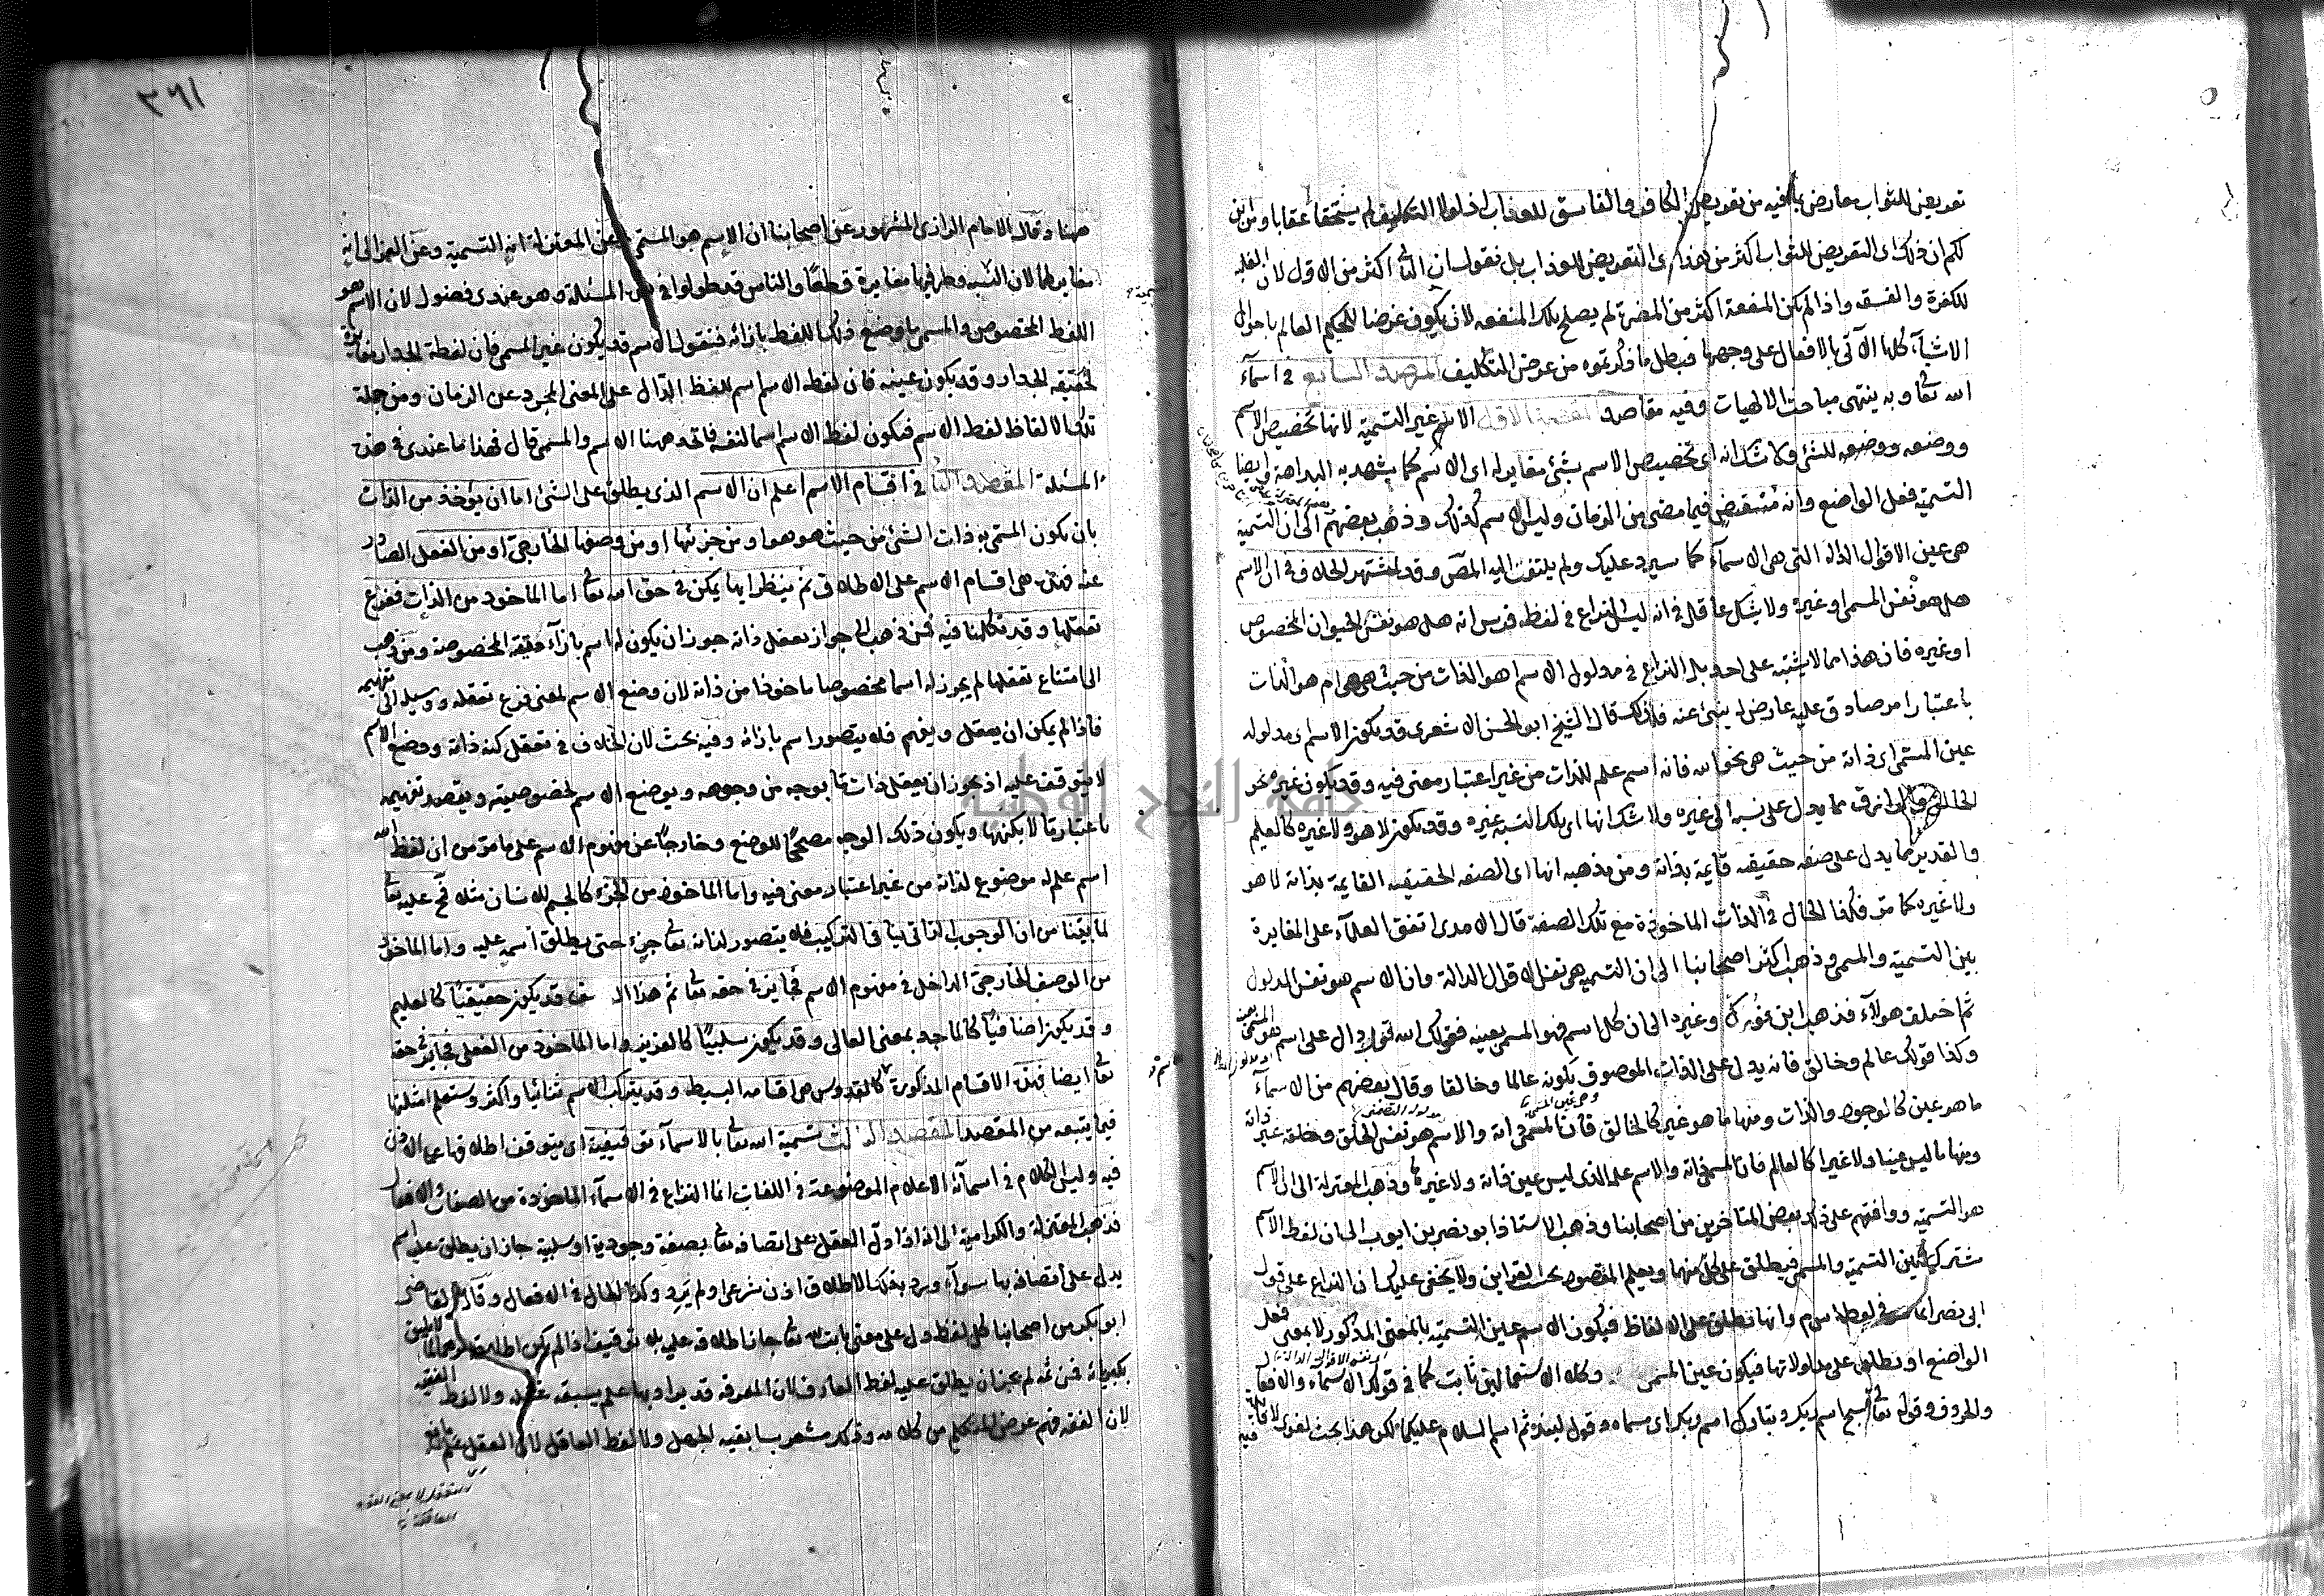 تعريض للثواب معارض بما فيه من تعريض الكافر والفاسق للعقاب اذ لولا التكليف لم يستحقا عقابا ومن اين
لكم ان ذلك اى التعريض للثواب اكثر من هذا اى التعريض للعذاب بل نقول ان الثانى اكثر من الاول لان الغلبة
للكفرة والفسقة واذا لم يكن المنفعة اكثر من المضرة لم يصلح تلك المنفعة لان يكون غرضا للحكيم العالم باحوال
الاشياء كلها الآتى بالافعال على وجهها فبطل ما ذكرتموه من غرض التكليف المرصد السابع فى اسماء
الله تعالى وبه ينتهى مباحث الالهيات وفيه مقاصد المقصد الاول الاسم غير التسمية لانها تخصيص الاسم
ووضعه ووضعه للشئ ولا شك انه اى تخصيص الاسم بشئ مغاير له اى الاسم كما يشهد به البداهة وايضا
التسمية فعل الواضع وانه منقض فيما مضى من الزمان وليس الاسم كذلك وذهب بعضهم الى ان التسمية
هى عين الاقوال الدالة التى هى الاسماء كما سيرد عليك ولم يلتفت اليه المص وقد اشتهر الخلاف فى ان الاسم
هل هو نفس المسمى او غيره ولا يشك عاقل فى انه ليس النزاع فى لفظة فرس انه هل هو نفس الحيوان المخصوص
او غيره فان هذا مما لا يشتبه على احد بل النزاع فى مدلول الاسم اهو الذات من حيث هى هى ام هو الذات
باعتبار امر صادق عليه عارض له ينبئ عنه فلذلك قال الشيخ ابو الحسن الاشعرى قد يكون الاسم اى مدلوله
عين المسمى اى ذاته من حيث هى نحو الله فانه اسم علم للذات من غير اعتبار معنى فيه وقد يكون غيره نحو
الخالق والرازق مما يدل على نسبة الى غيره ولا شك انها اى تلك النسبة غيره وقد يكون لا هو ولا غيره كالعليم
والقدير مما يدل على صفة حقيقية قايمة بذاته ومن مذهبه انها اى الصفة الحقيقية القايمة بذاته لا هو
ولا غيره كما مر فكذا الحال فى الذات الماخوذة مع تلك الصفة قال الامدى اتفق العلماء على المغايرة
بين التسمية والمسمى وذهب اكثر اصحابنا الى ان التسمية هى نفس الاقوال الدالة وان الاسم هو نفس المدلول
ثم اختلف هولاء فذهب ابن فورك وغيره الى ان كل اسم فهو المسمى بعينه فقولك الله قول دال على اسم هو المسمى
وكذا قولك عالم وخالق فانه يدل على الذات الموصوف بكونه عالما وخالقا وقال بعضهم من الاسماء
ما هو عين كالموجود والذات ومنها ما هو غير كالخالق فان المسمى ذاته والاسم هو نفس الخلق وخلقه غير ذاته
ومنها ما ليس عينا ولا غيرا كالعالم فان المسمى ذاته والاسم علمه الذى ليس عين ذاته ولا غيرها وذهب المعتزلة الى ان الاسم
هو التسمية ووافقهم على ذلك بعض المتاخرين من اصحابنا وذهب الاستاذ ابو نصر بن ايوب الى ان لفظ الاسم
مشترك بين التسمية والمسمى فيطلق على كل منهما ويعلم المقصود بحسب القراين ولا يخفى عليك ان النزاع على قول
ابى نصر انما هو فى لفظة اسم وانها تطلق على الالفاظ فيكون الاسم عين التسمية بالمعنى المذكور لا بمعنى فعل
الواضع او تطلق على مدلولاتها فيكون عين المسمى وكلا الاستعمالين ثابت كما فى قولك الاسماء والافعال
والحروف وقوله تعالى سبح اسم ربك وتبارك اسم ربك اى مسماه وقول لبيد ثم اسم السلام عليكما لكن هذا بحث لغوى لا فائدة فيه
٣٩١
ههنا وقال الامام الرازى المشهور عن اصحابنا ان الاسم هو المسمى وعن المعتزلة انه التسمية وعن الغزالى انه
مغاير لهما لان النسبة وطرفيها مغايرة قطعا والناس قد طولوا فى هذه المسئلة وهو عندى فضول لان الاسم هو
اللفظ المخصوص والمسمى ما وضع ذلك اللفظ بازائه فنقول الاسم قد يكون غير المسمى فان لفظة الجدار مغايرة
لحقيقة الجدار وقد يكون عينه فان لفظة الاسم اسم للفظ الدال على المعنى المجرد عن الزمان ومن جملة
تلك الالفاظ لفظ الاسم فيكون لفظ الاسم اسما لنفسه فاتحد ههنا الاسم والمسمى قال فهذا ما عندى فى هذه
المسئلة المقصد الثانى فى اقسام الاسم اعلم ان الاسم الذى يطلق على الشئ اما ان يؤخذ من الذات
بان يكون المسمى به ذات الشئ من حيث هو هو او من جزئها او من وصفها الخارجى او من الفعل الصادر
عنه فهذه هى اقسام الاسم على الاطلاق ثم ننظر ايها يمكن فى حق الله تعالى اما الماخوذ من الذات ففرع
تعقلها وقد تكلمنا فيه فمن ذهب الى جواز تعقل ذاته جوز ان يكون له اسم بازاء حقيقته المخصوصة ومن ذهب
الى امتناع تعقلها لم يجوز له اسما مخصوصا ماخوذا من ذاته لان وضع الاسم لمعنى فرع تعقله ووسيلة الى تفهيمه
فاذا لم يمكن ان يعقل ويفهم فلا يتصور اسم بازائه وفيه بحث لان الخلاف فى تعقل كنه ذاته ووضع الاسم
لا يتوقف عليه اذ يجوز ان يعقل ذات ما بوجه من وجوهه ويوضع الاسم لخصوصيته ويقصد تفهيمه
باعتبار ما لا بكنهها ويكون ذلك الوجه مصححا للوضع وخارجا عن مفهوم الاسم على ما مر من ان لفظ الله
اسم علم له موضوع لذاته من غير اعتبار معنى فيه واما الماخوذ من الجزء كالجسم للانسان مثلا فمحال عليه تعالى
لما بينا من ان الوجوب الذاتى ينافى التركيب فلا يتصور لذاته تعالى جزء حتى يطلق اسمه عليه واما الماخوذ
من الوصف الخارجى الداخل فى مفهوم الاسم فجايز فى حقه تعالى ثم هذا الوصف قد يكون حقيقيا كالعليم
وقد يكون اضافيا كالماجد بمعنى العالى وقد يكون سلبيا كالعزيز واما الماخوذ من الفعل فجايز فى حقه
تعالى ايضا فهذه الاقسام المذكورة كالقدوس هى اقسامه البسيطة وقد يتركب الاسم ثنائيا واكثر وستعلم امثلتها
فيما يتبعه من المقصد المقصد الثالث تسمية الله تعالى بالاسماء توقيفية اى يتوقف اطلاقها على الاذن
فيه وليس الكلام فى اسمائه الاعلام الموضوعة فى اللغات انما النزاع فى الاسماء الماخوذة من الصفات والافعال
فذهب المعتزلة والكرامية الى انه اذا دل العقل على اتصافه تعالى بصفة وجودية او سلبية جاز ان يطلق عليه اسم
يدل على اتصافه بها سواء ورد بذلك الاطلاق اذن شرعى او لم يرد وكذا الحال فى الافعال وقال القاضى
ابو بكر من اصحابنا كل لفظ دل على معنى ثابت لله تعالى جاز اطلاقه عليه بلا توقيف اذا لم يكن اطلاقه موهما لما لا يليق
بكبريائه فمن ثمه لم يجز ان يطلق عليه لفظ العارف لان المعرفة قد يراد بها علم يسبقه غفلة ولا لفظ الفقيه
لان الفقه فهم غرض المتكلم من كلامه وذلك مشعر بسابقية الجهل ولا لفظ العاقل لان العقل علم مانع
جامعة النجاح الوطنية